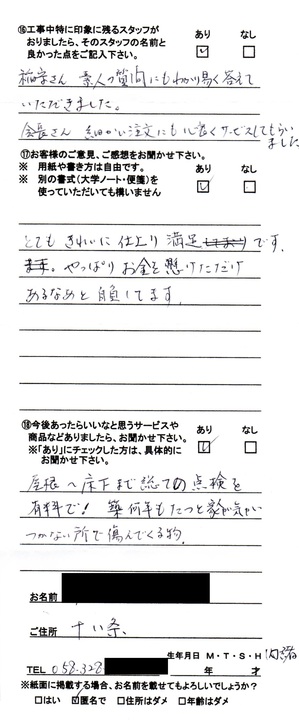 ⑯工事中特に印象に残るスタッフが あり なし
おりましたら、そのスタッフの名前と
良かった点をご記入下さい。
さん 素人の質問にもわかり易く答えて
いただきました。
会長さん 細かい注文にも心良くサービスしてもらい
ました
⑰お客様のご意見、ご感想をお聞かせ下さい。
※ 用紙や書き方は自由です。
※ 別の書式(大学ノート・便箋)を
使っていただいても構いません
とてもきれいに仕上り 満足です。
やっぱりお金を懸けただけ
あるなあと自負してます。
⑱今後あったらいいなと思うサービスや あり なし
商品などありましたら、お聞かせ下さい。
※「あり」にチェックした方は、具体的に
お聞かせ下さい。
屋根〜床下まで総ての点検を
有料で! 築何年もたつと家が気が
つかない所で傷んでくる物。
お名前
ご住所
生年月日 M・T・S・H
TEL 058-328 年 才
※紙面に掲載する場合、お名前を載せてもよろしいでしょうか?
□はい ☑匿名で □住所はダメ □年齢はダメ